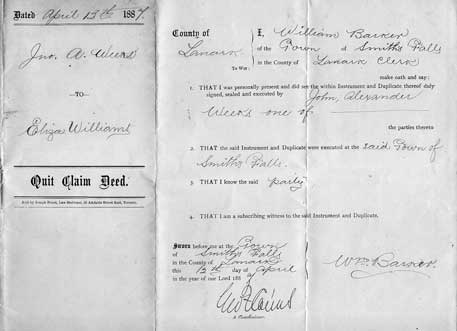 Dated April 13th 1887.
Jno. A. Weeks
—TO—
Eliza Williams
Quit Claim Deed.
County of Lanark
To Wit:
I, William Barker
of the Town of Smiths Falls
in the County of Lanark Clerk
make oath and say:
1. THAT I was personally present and did see the within Instrument and Duplicate thereof duly
signed, sealed and executed by John Alexander
Weeks one of
the parties thereto
2. THAT the said Instrument and Duplicate were executed at the said Town of
Smiths Falls.
3. THAT I know the said party
4. THAT I am a subscribing witness to the said Instrument and Duplicate.
SWORN before me at the Town
of Smiths Falls
in the County of Lanark
this 13th day of April
in the year of our Lord 188
Wm. Barker.
A Commissioner.